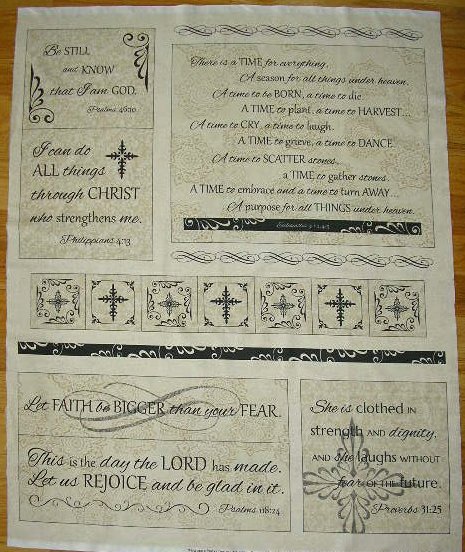 Be STILL
and KNOW
that I am GOD.
Psalms 46:10
I can do
ALL things
through CHRIST
who strengthens me.
Philippians 4:13
There is a TIME for everything,
A season for all things under heaven.
A time to be BORN, a time to die.
A TIME to plant, a time to HARVEST...
A time to CRY, a time to laugh.
A TIME to grieve, a time to DANCE.
A time to SCATTER stones...
a TIME to gather stones.
A TIME to embrace and a time to turn AWAY.
A purpose for all THINGS under heaven.
Let FAITH be BIGGER than your FEAR.
This is the day the LORD has made.
Let us REJOICE and be glad in it.
Psalms 118:24
She is clothed in
strength AND dignity,
AND she laughs WITHOUT
fear OF THE future.
Proverbs 31:25